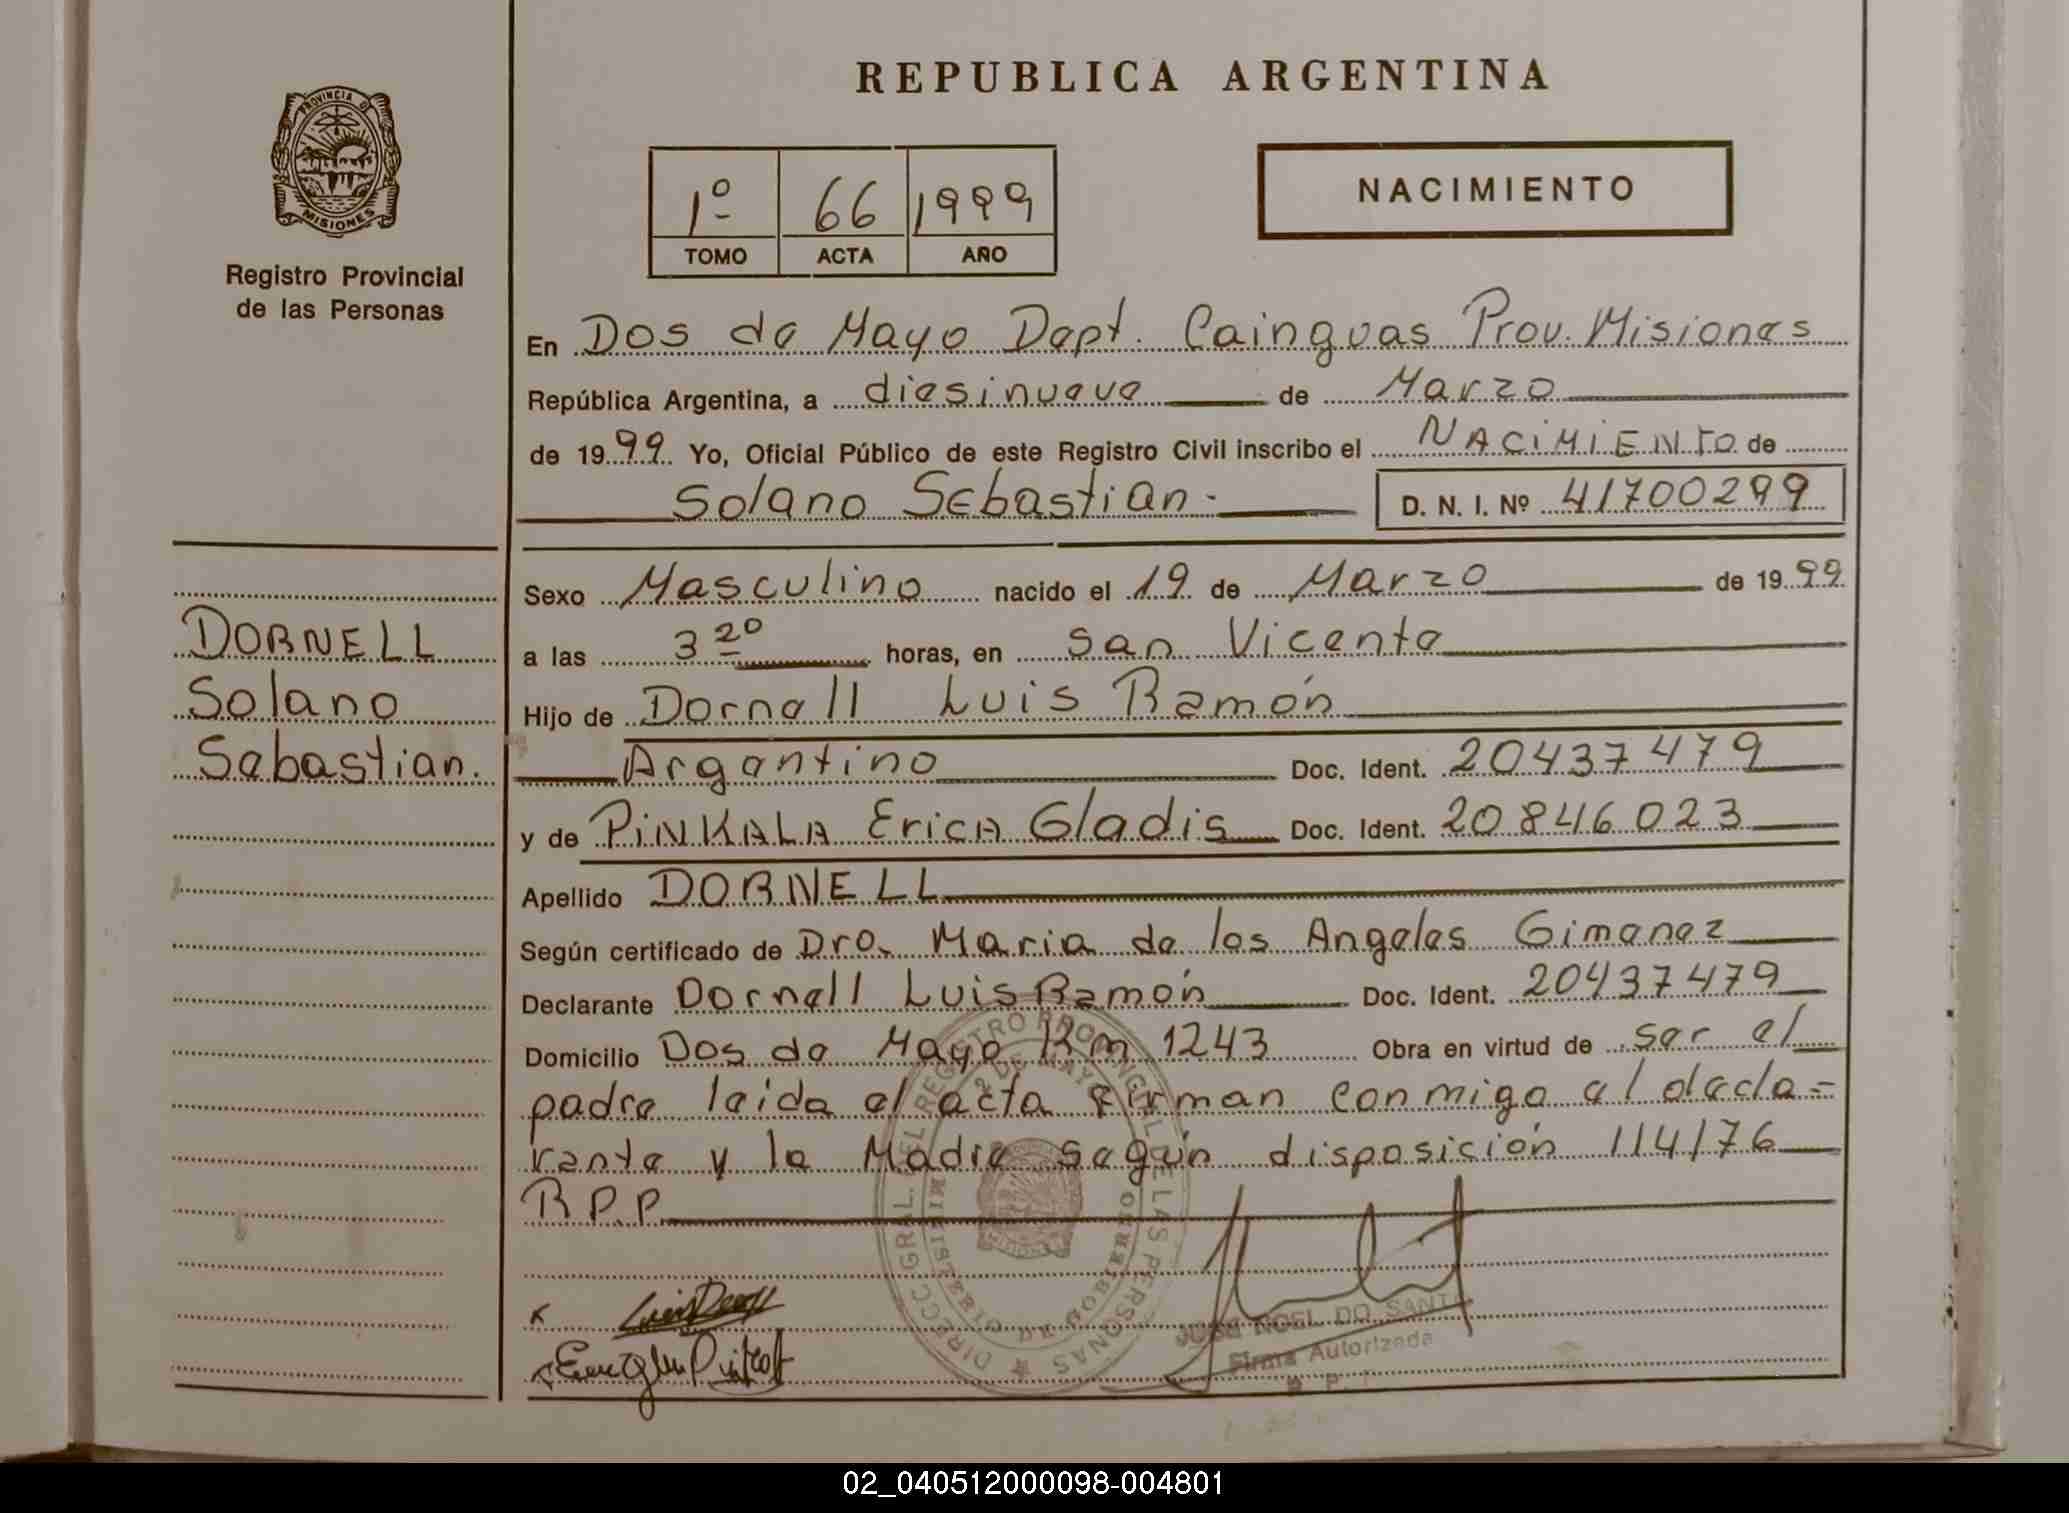 REPUBLICA ARGENTINA
PROVINCIA DE
MISIONES
Registro Provincial
de las Personas
1º 66 1999
TOMO ACTA AÑO
NACIMIENTO
En Dos de Mayo Dept. Cainguas Prov. Misiones
República Argentina, a diesinueve de Marzo
de 1999 Yo, Oficial Público de este Registro Civil inscribo el NACIMIENTO de
Solano Sebastian. D. N. I. Nº 41700299
DORNELL
Solano
Sebastian.
Sexo Masculino nacido el 19 de Marzo de 1999
a las 3 20 horas, en San Vicente
Hijo de Dornell Luis Ramón
Argentino Doc. Ident. 20437479
y de PINKALA Erica Gladis Doc. Ident. 20846023
Apellido DORNELL
Según certificado de Dra. Maria de los Angeles Gimenez
Declarante Dornell Luis Ramón Doc. Ident. 20437479
Domicilio Dos de Mayo Km 1243 Obra en virtud de ser el
padre leida el acta firman conmigo el decla=
rante y la Madre según disposición 114/76
R P. P
DIRECC. GRAL. DEL REGISTRO PROVINCIAL DE LAS PERSONAS
2 DE MAYO
MINISTERIO DE GOBIERNO
JOSE NOEL DO SANTO
Firma Autorizada
02_040512000098-004801